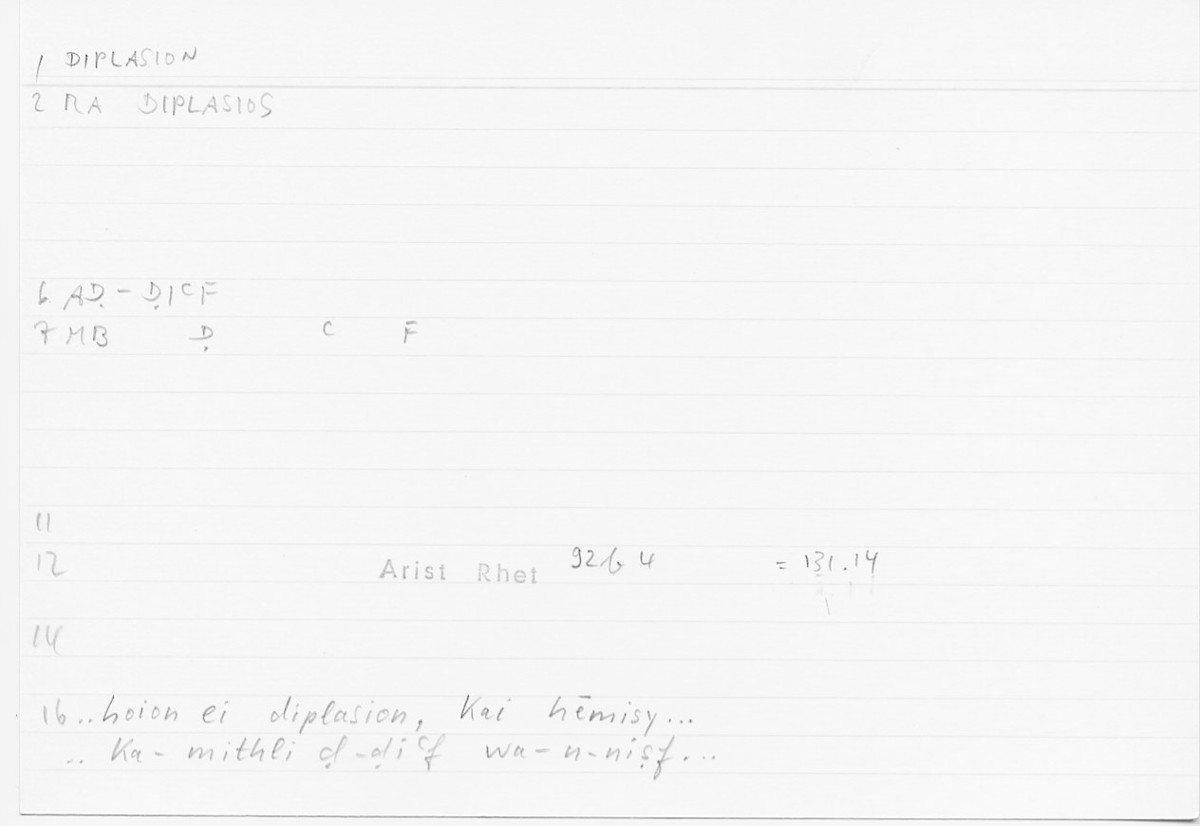 1 DIPLASION
2 RA DIPLASIOS
6 AḌ - ḌIᶜF
7 MB Ḍ C F
11
12 Arist Rhet 92b 4 = 131.14
14
16 ..hoion ei diplasion, Kai hēmisy...
.. Ka- mithli ḍ-ḍiᶜf wa-n-niṣf...